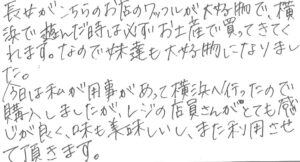 長女がこちらのお店のワッフルが大好物で、横
浜で遊んだ時は必ずお土産で買ってきてく
れます。なので妹達も大好物になりまし
た。
今日は私が用事があって横浜へ行ったので
購入しましたが、レジの店員さんがとても感
じが良く、味も美味しいし、また利用させ
て頂きます。